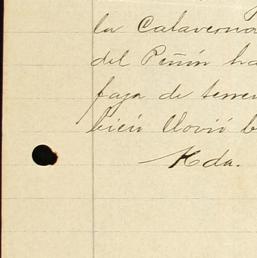 la Calaverna
del Peñón ha
faja de terre
bien llovió b
Hda.